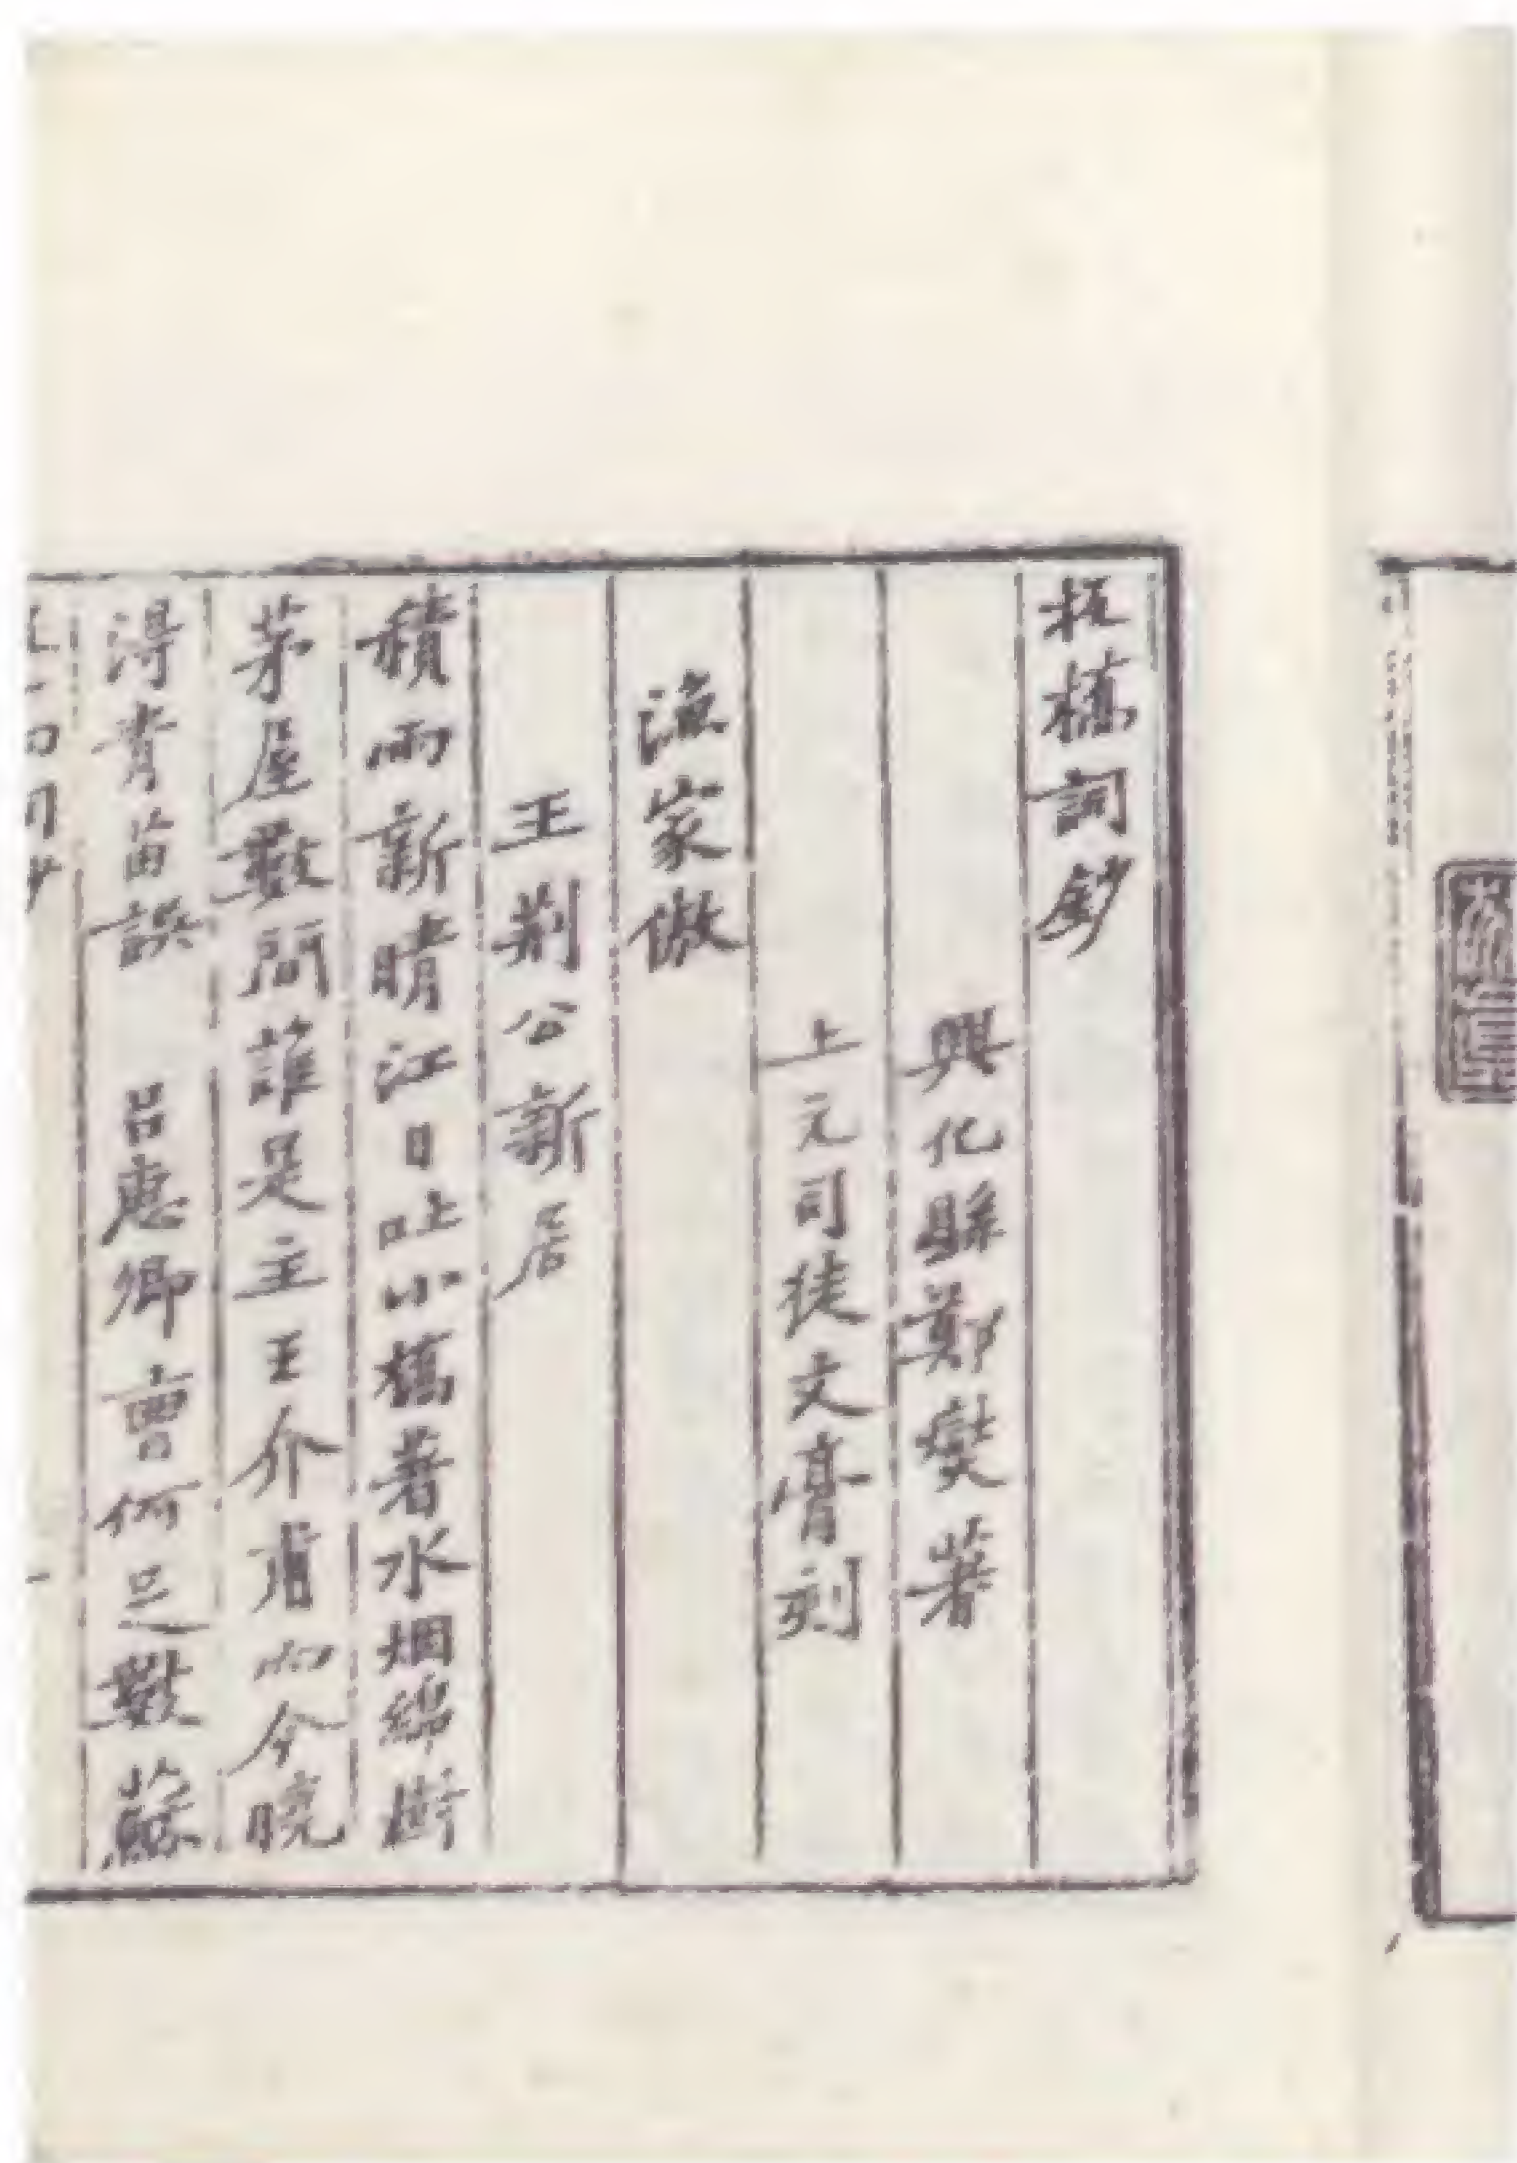 板橋詞鈔
興化縣鄭燮著
上元司徒文膏刻
漁家傲
王荆公新居
積雨新晴江日吐小橋著水烟綿樹
茅屋數間誰是主王介甫而今曉
得青苗誤　吕惠卿曹何足數蘇